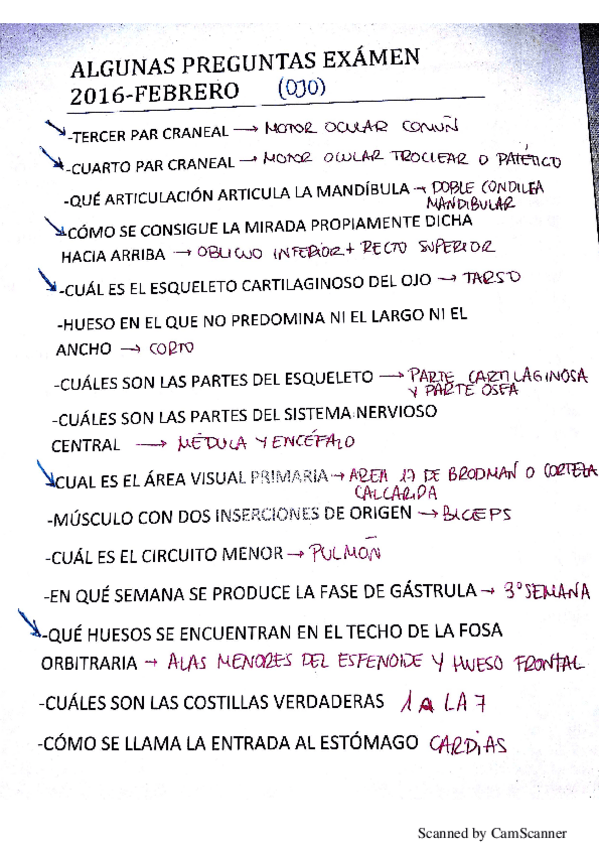 ALGUNAS PREGUNTAS EXÁMEN
2016-FEBRERO (OJO)
-TERCER PAR CRANEAL → MOTOR OCULAR COMUÑ
-CUARTO PAR CRANEAL → MOTOR OCULAR TROCLEAR O PATÉTICO
-QUÉ ARTICULACIÓN ARTICULA LA MANDÍBULA → DOBLE CONDILEA
MANDIBULAR
-CÓMO SE CONSIGUE LA MIRADA PROPIAMENTE DICHA
HACIA ARRIBA → OBLICUO INFERIOR + RECTO SUPERIOR
-CUÁL ES EL ESQUELETO CARTILAGINOSO DEL OJO → TARSO
-HUESO EN EL QUE NO PREDOMINA NI EL LARGO NI EL
ANCHO → CORTO
-CUÁLES SON LAS PARTES DEL ESQUELETO → PARTE CARTILAGINOSA
Y PARTE OSEA
-CUÁLES SON LAS PARTES DEL SISTEMA NERVIOSO
CENTRAL → MÉDULA Y ENCÉFALO
-CUAL ES EL ÁREA VISUAL PRIMARIA → AREA 17 DE BRODMAN O CORTEZA
CALCARIDA
-MÚSCULO CON DOS INSERCIONES DE ORIGEN → BICEPS
-CUÁL ES EL CIRCUITO MENOR → PULMOÑ
-EN QUÉ SEMANA SE PRODUCE LA FASE DE GÁSTRULA → 3º SEMANA
-QUÉ HUESOS SE ENCUENTRAN EN EL TECHO DE LA FOSA
ORBITRARIA → ALAS MENORES DEL ESFENOIDE Y HUESO FRONTAL
-CUÁLES SON LAS COSTILLAS VERDADERAS 1 A LA 7
-CÓMO SE LLAMA LA ENTRADA AL ESTÓMAGO CARDIAS
Scanned by CamScanner